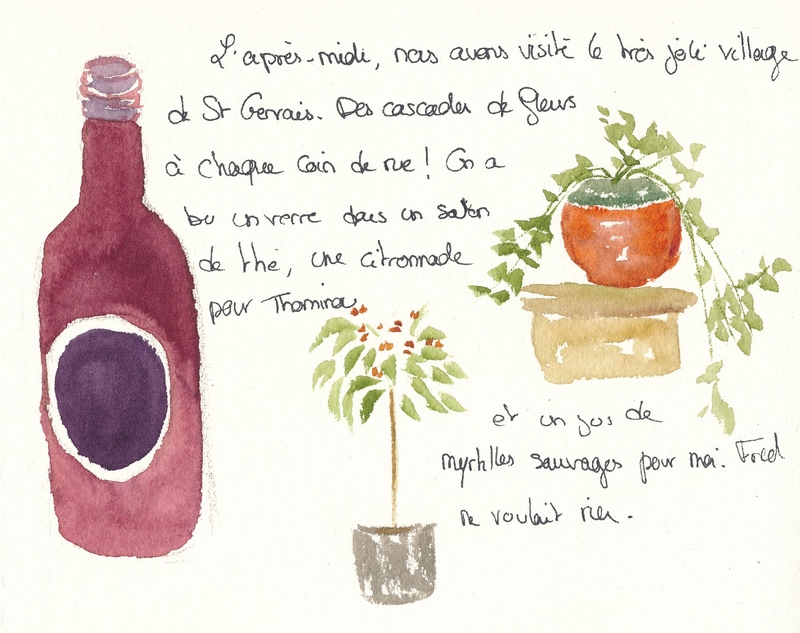 L'après-midi, nous avons visité le très joli village
de St Gervais. Des cascades de fleurs
à chaque coin de rue ! On a
bu un verre dans un salon
de thé, une citronnade
pour Thomira
et un jus de
myrtilles sauvages pour moi. Fred
ne voulait rien.